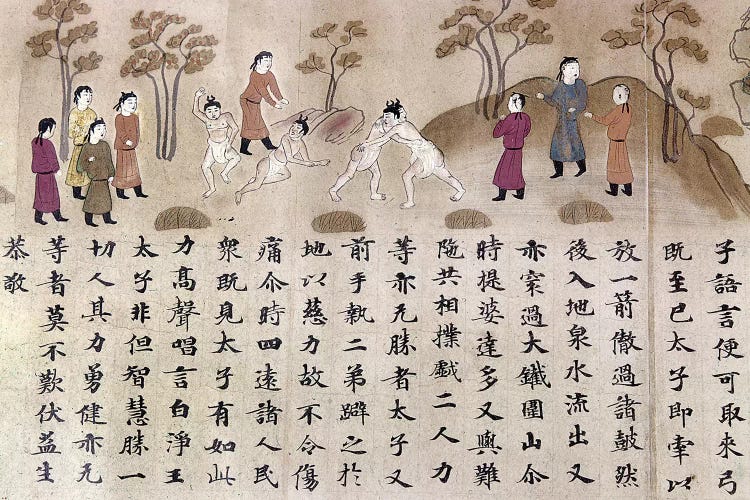 子語言便可取來弓
既至已太子即牽以
放一箭徹過諸鼓然
後入地泉水流出又
亦穿過大鐵圍山尒
時提婆達多又與難
陁共相撲戯二人力
等亦无勝者太子又
前手執二弟躃之於
地以慈力故不令傷
痛尒時四遠諸人民
衆既見太子有如此
力高聲唱言白淨王
太子非但智慧勝一
切人其力勇健亦无
等者莫不歎伏益生
恭敬